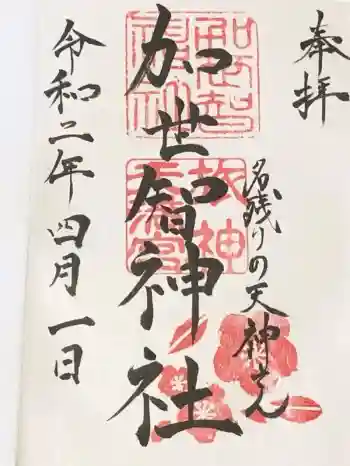 奉拝
名残りの天神さん
加世智神社
令和二年四月一日